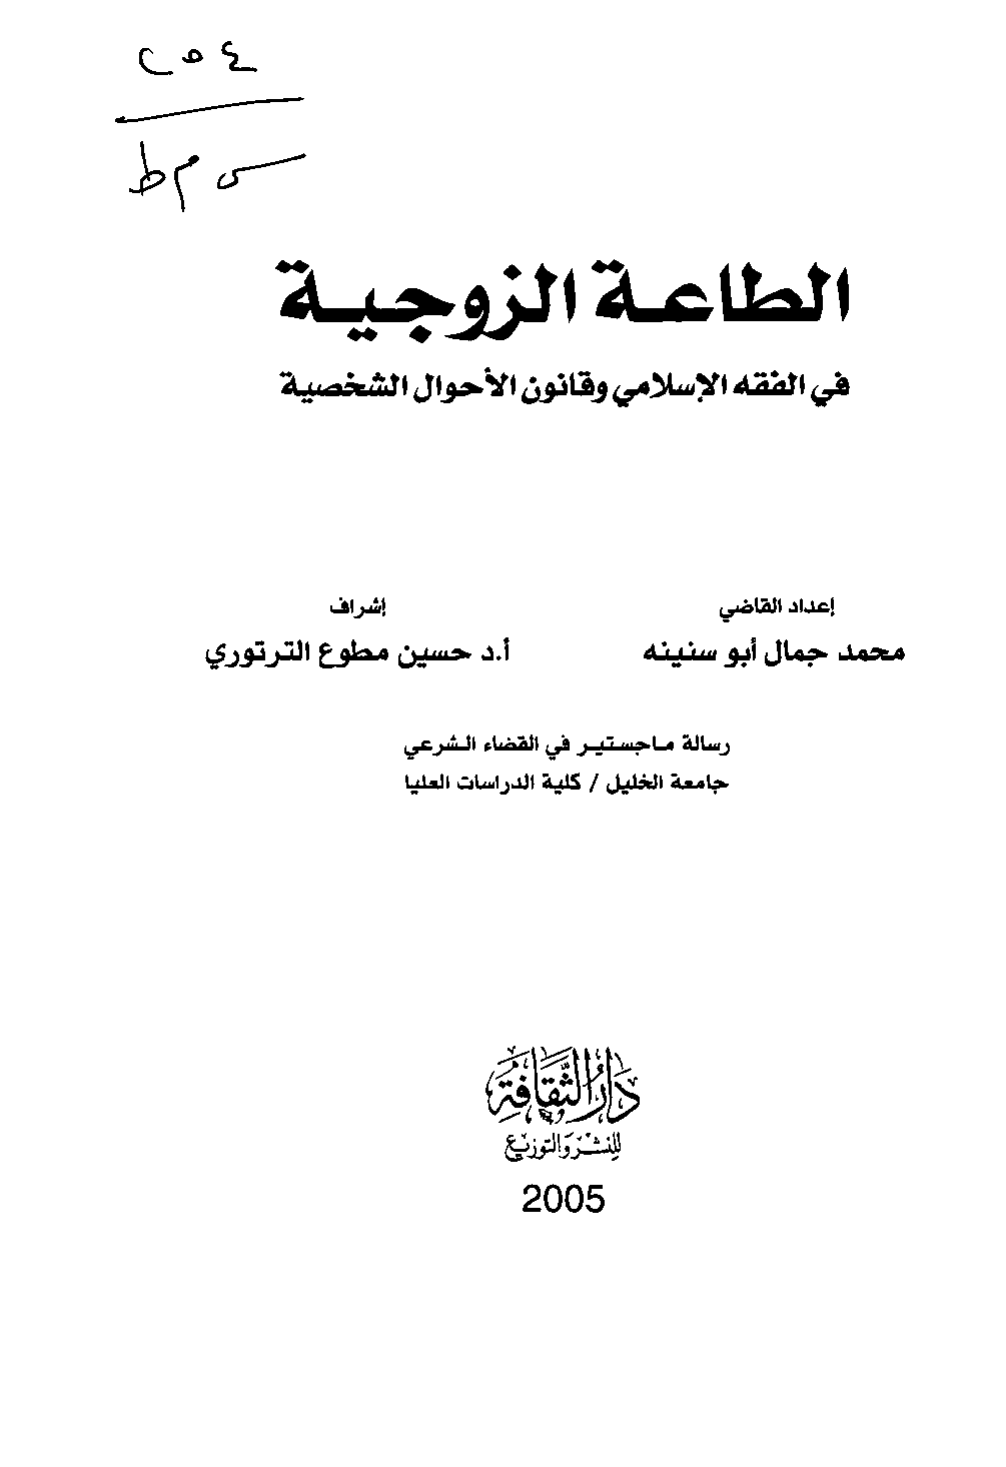 الطاعة الزوجية
في الفقه الإسلامي وقانون الأحوال الشخصية
إعداد القاضي
محمد جمال أبو سنينه
إشراف
أ.د حسين مطوع الترتوري
رسالة ماجستير في القضاء الشرعي
جامعة الخليل / كلية الدراسات العليا
دَارُ الثَّقَافَة
للنشر والتوزيع
2005